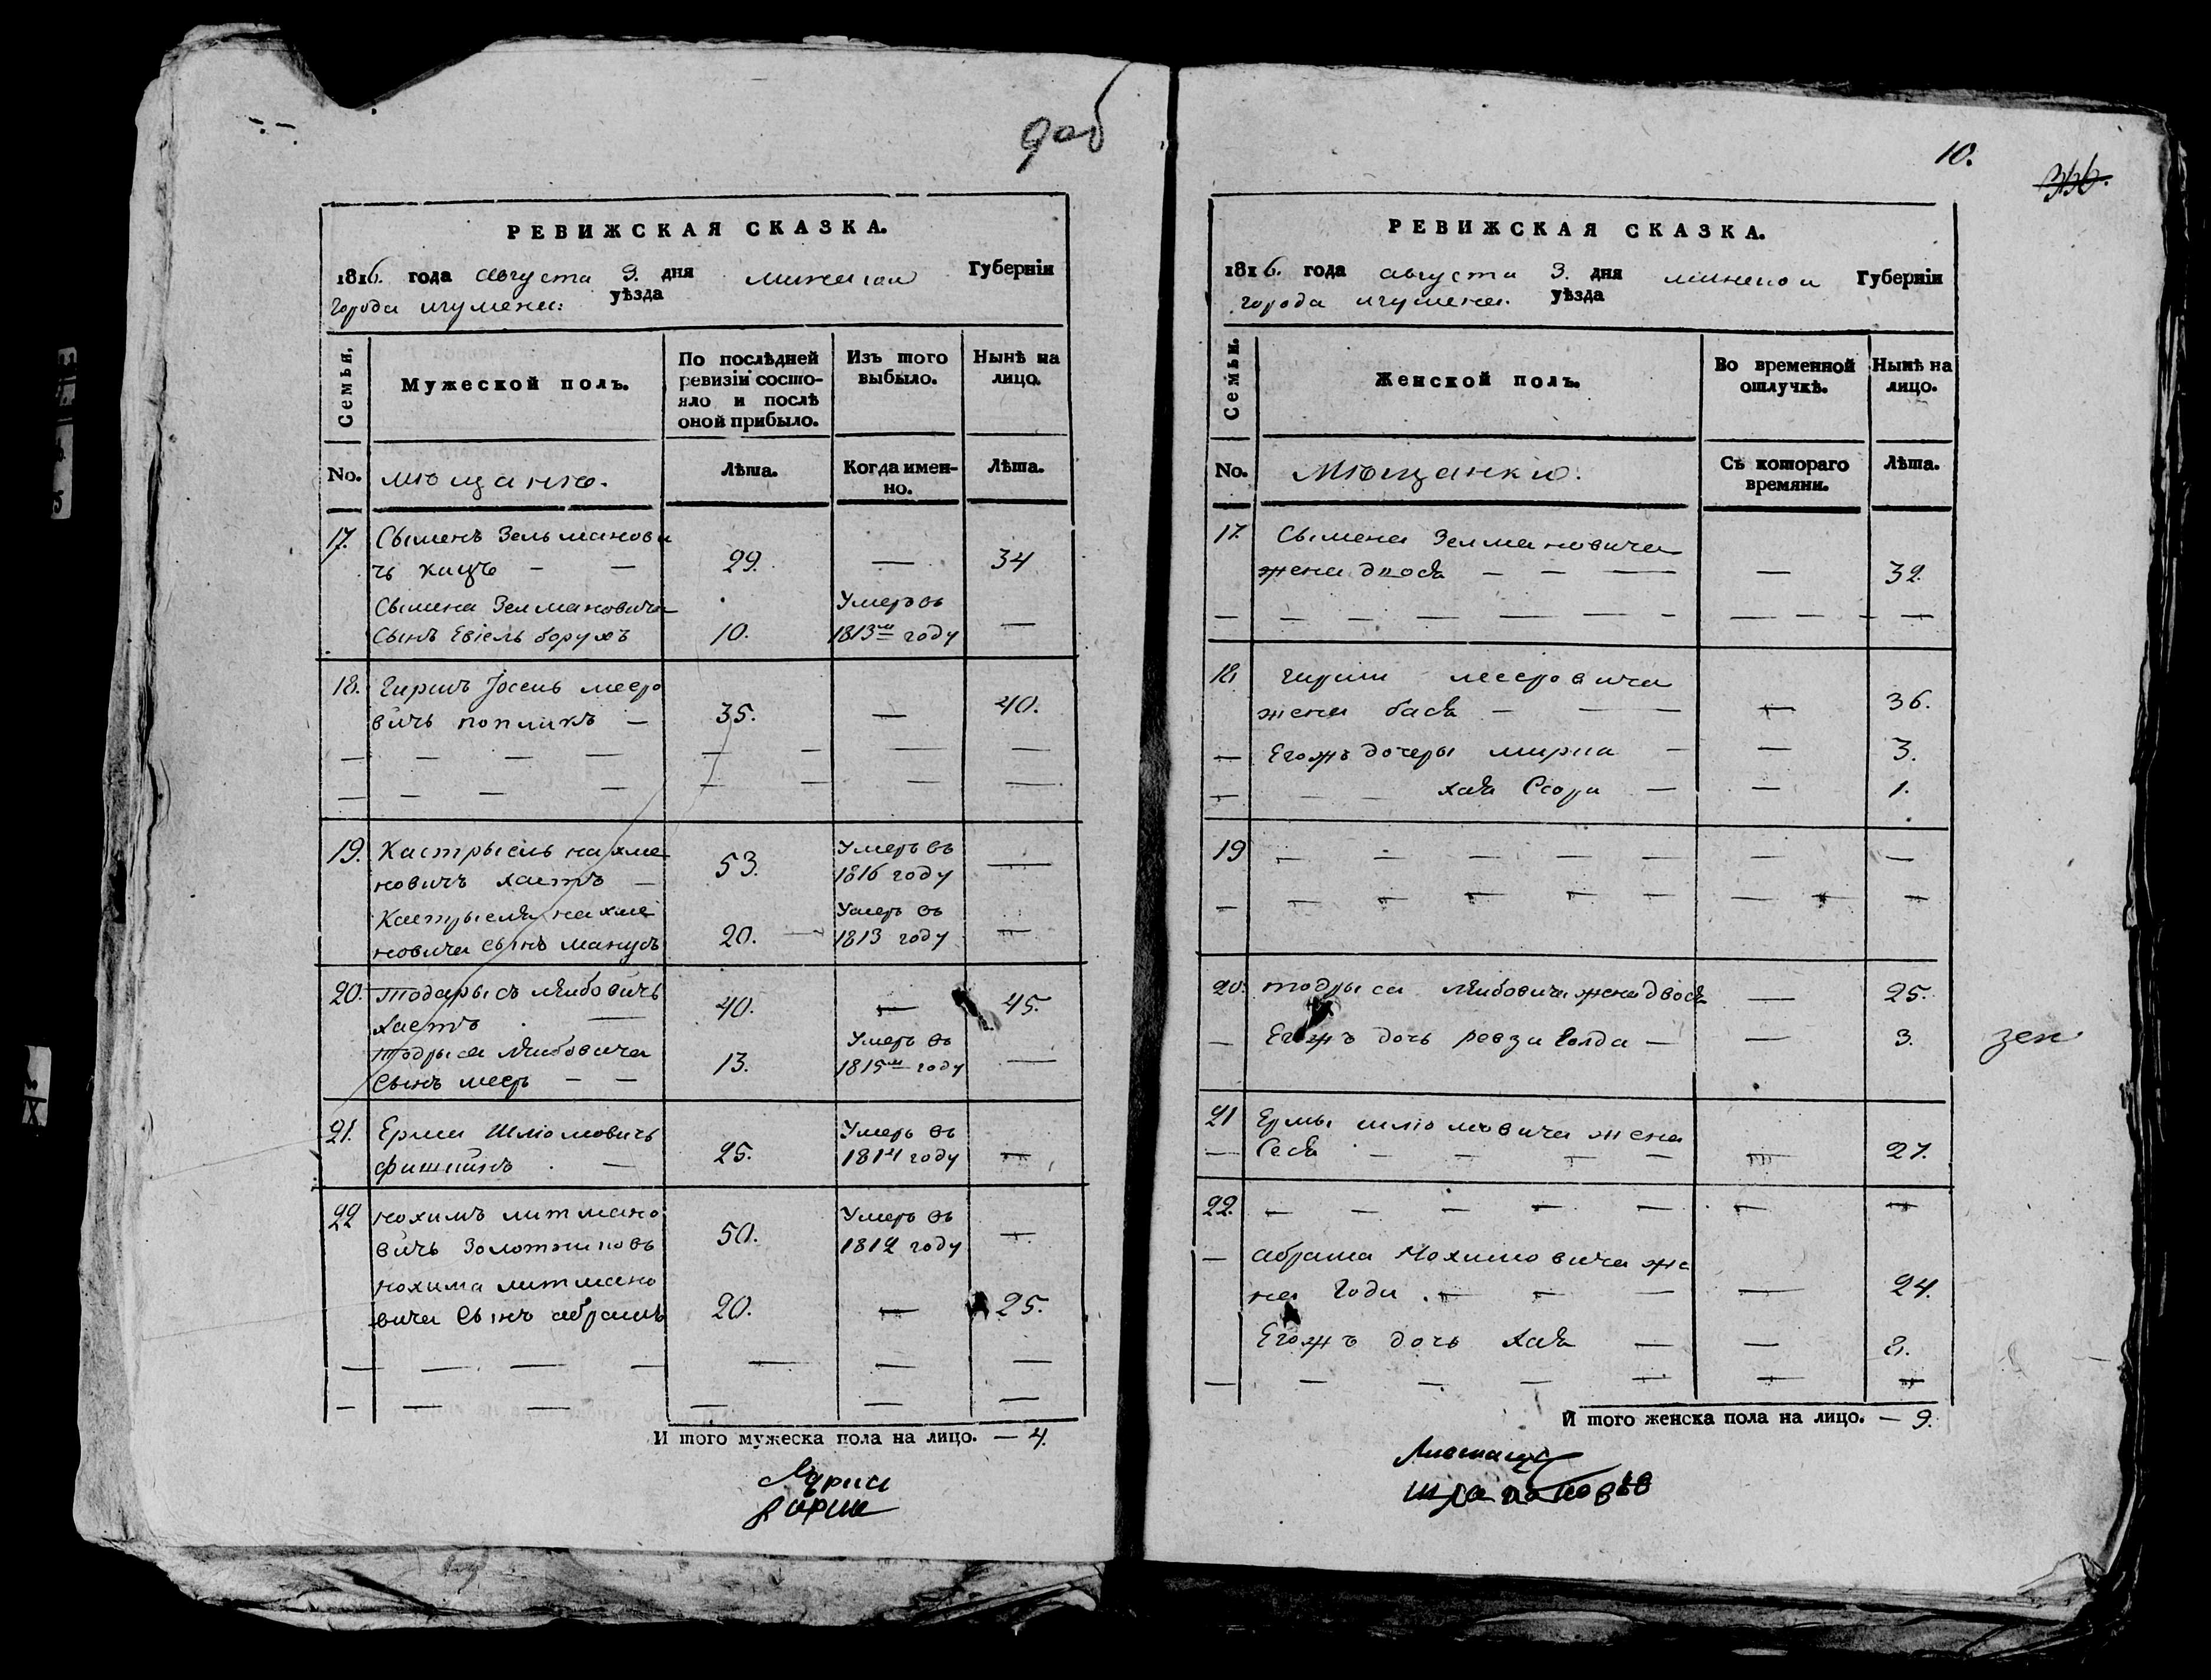 10.
РЕВИЖСКАЯ СКАЗКА.
1816. года августа 3. дня минской Губерніи
города игумена: уѣзда
Семья,
Мужеской полъ.
По послѣдней ревизіи состо-
яло и послѣ
оной прибыло.
Изъ того
выбыло.
Нынѣ на
лицо.
No. мѣщанѣ.
Лѣта.
Когда имен-
но.
Лѣта.
17. Сыменъ Зельманови
чъ кацъ — — 29. — 34
Сымена Зелмановича Умеръ въ
сынъ Евіель борухъ 10. 1813м году —
18. Гиршъ Іосель мееро
вичъ попликъ — 35. — 40.
19. Кастрыель нахме Умеръ въ
новичъ хаетъ — 53. 1816 году —
Кастрыеля нахме Умеръ въ
новича сынъ манусъ 20. — 1813 году —
20. тодарысъ лейбовичъ 40. — 45.
хаетъ —
тодрыса лейбовича Умеръ въ
сынъ меер — — 13. 1815м году —
21. Ерма Шліомовичъ Умеръ въ
фишкинъ — 25. 1814 году —
22 нохимъ литмано Умеръ въ
вичъ Золотниковъ 50. 1812 году —
нохима литмано
вича сынъ абрамъ 20. — 25.
И того мужеска пола на лицо. — 4.
РЕВИЖСКАЯ СКАЗКА.
1816. года августа 3. дня минской Губерніи
города игумена. уѣзда
Семьи.
Женской полъ.
Во временной
отлучкѣ.
Нынѣ на
лицо.
No. Мѣщанки:
Съ котораго
времяни.
Лѣта.
17 Сымена Зелмановича
жена двося — — — — 32.
18. гирши мееровича
жена бася — — — 36.
— Егожъ дочеры мирка — — 3.
— хая Сора — — 1.
19 — — — — — — —
20. тодрыса лейбовича жена двося — 25.
— Егожъ дочь ревза Голда — — 3.
21 Ермы шліомовича жена
— Сося — — — — — 27.
22. — — — — — — —
— абрама Нохимовича же
на Года . — — — — 24.
Егожъ дочь хая — — 2.
И того женска пола на лицо. — 9.